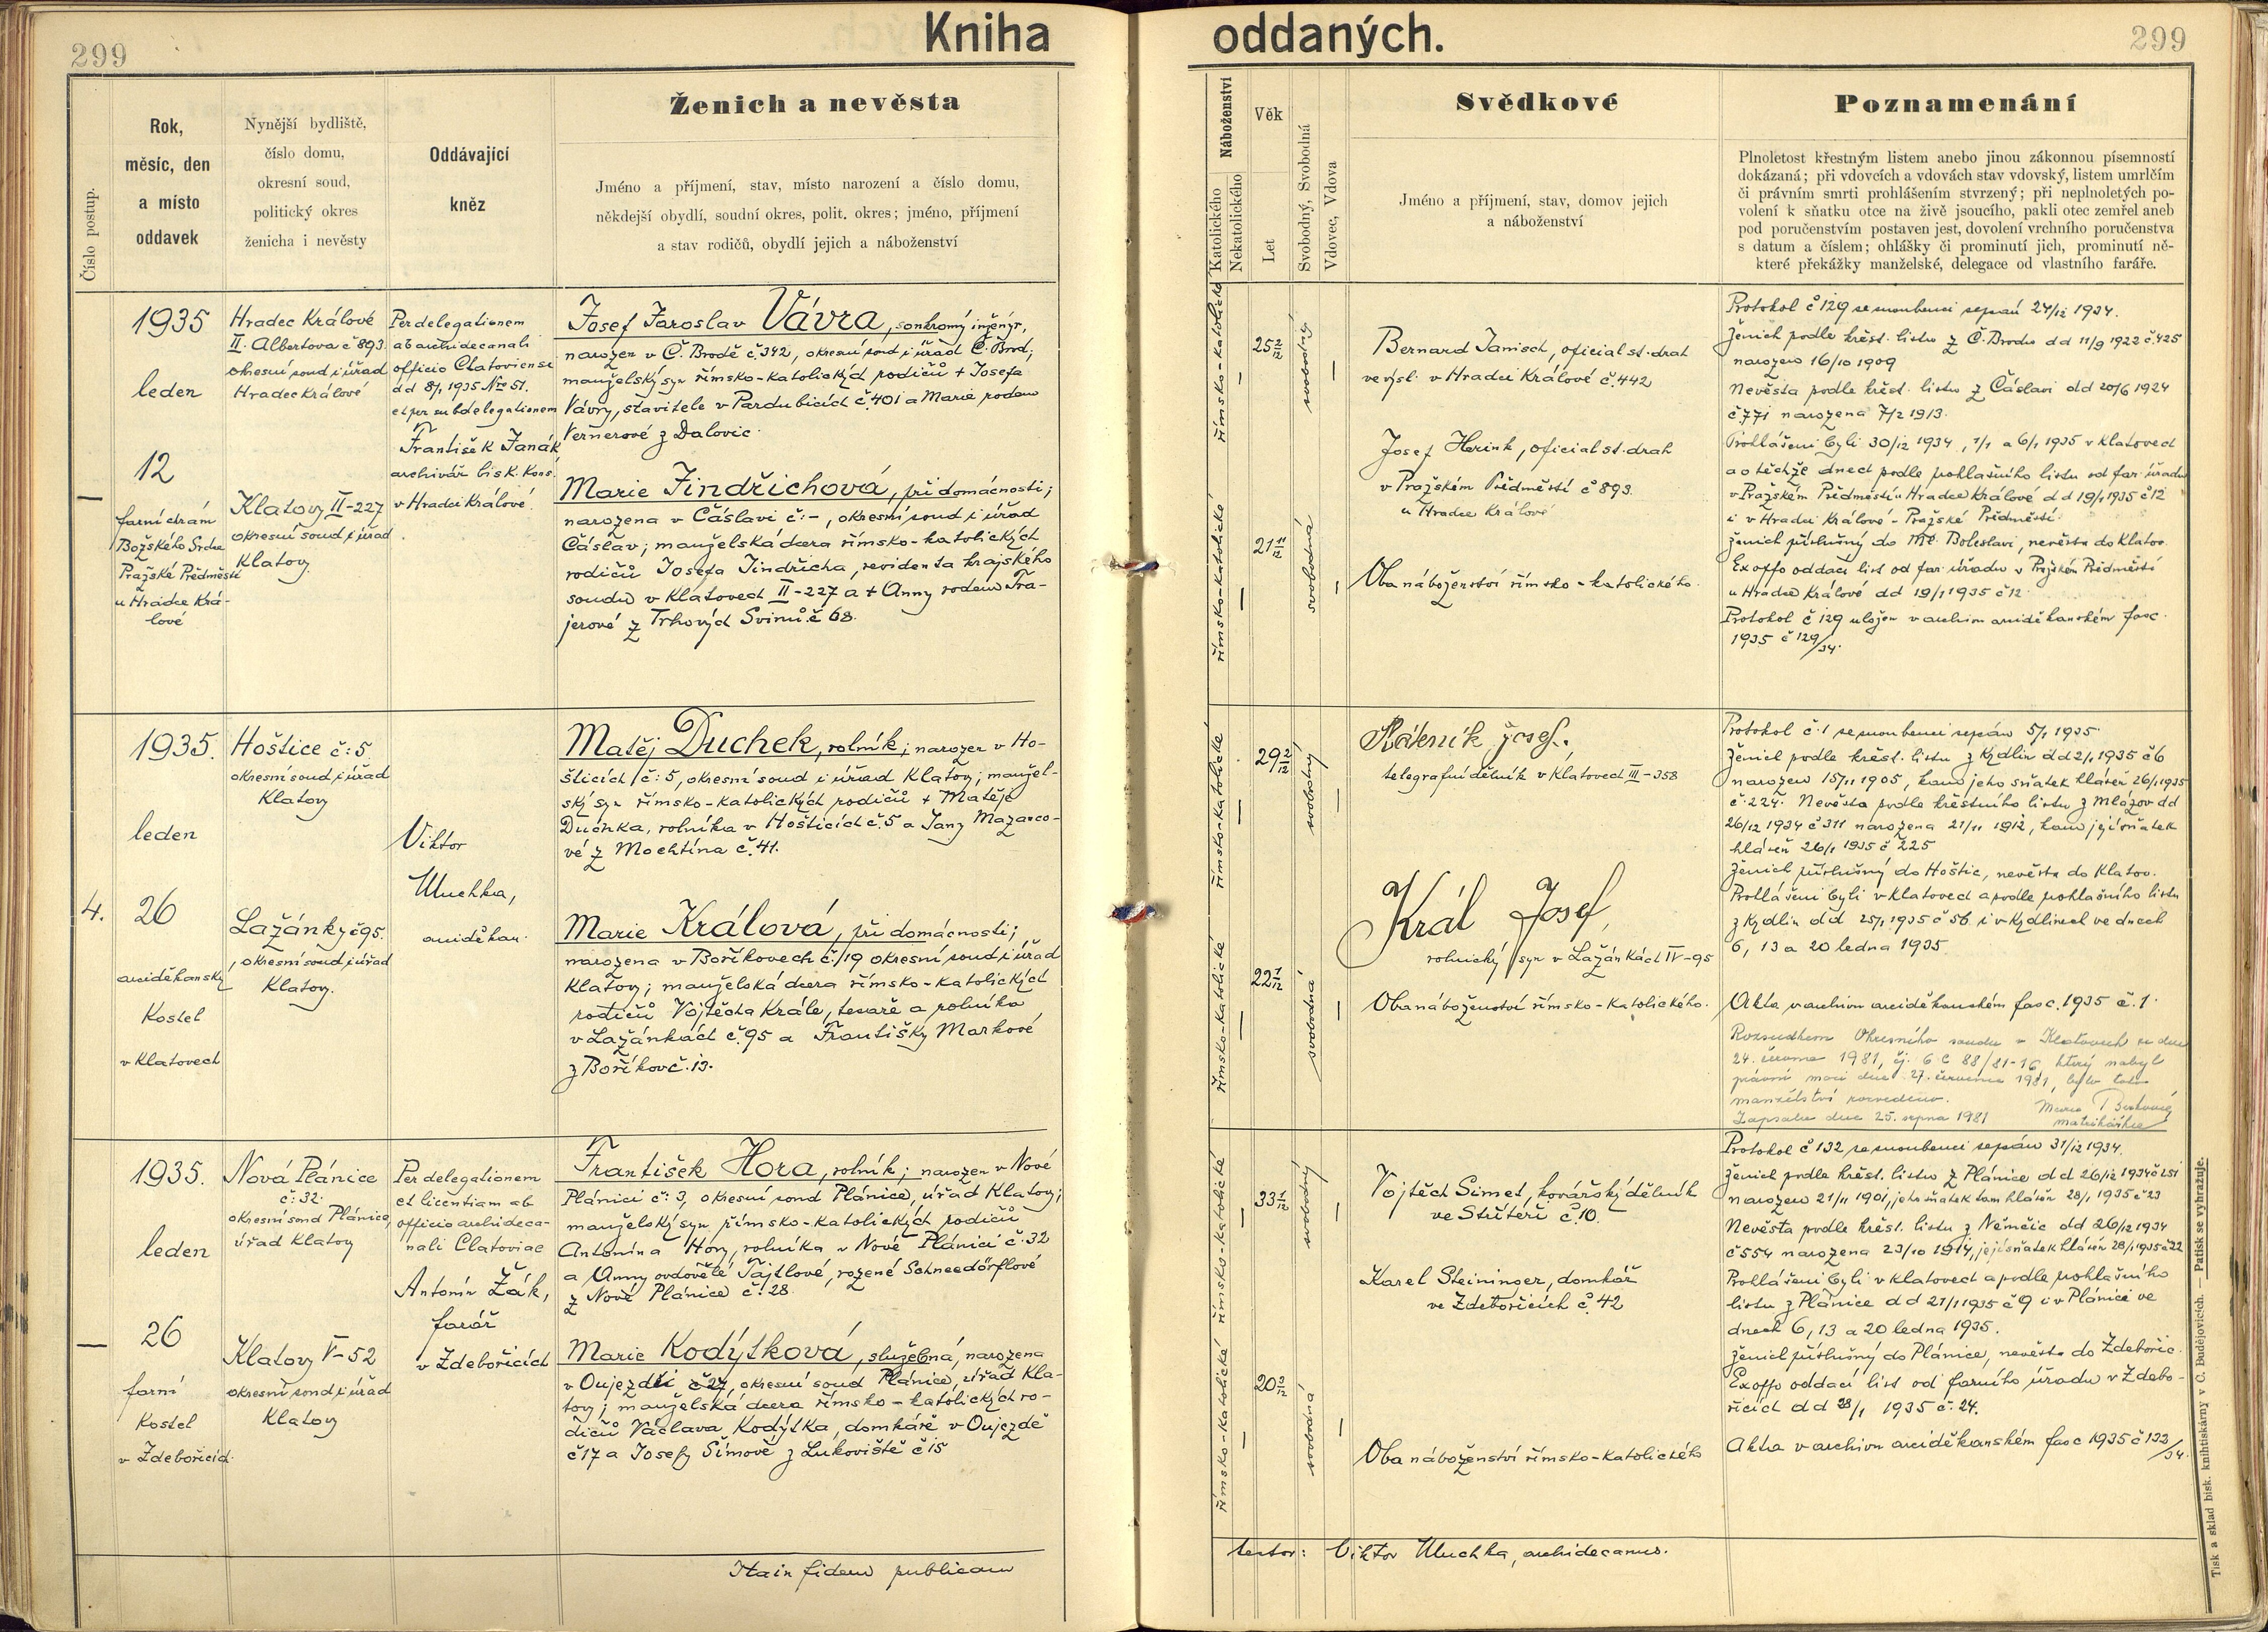 299
Kniha
oddaných.
299
Číslo postup.
Rok,
měsíc, den
a místo
oddavek
Nynější bydliště,
číslo domu,
okresní soud,
politický okres
ženicha i nevěsty
Oddávající
kněz
Ženich a nevěsta
Jméno a příjmení, stav, místo narození a číslo domu,
někdejší obydlí, soudní okres, polit. okres; jméno, příjmení
a stav rodičů, obydlí jejich a náboženství
Náboženství
Katolického
Nekatolického
Věk
Let
Svobodný, Svobodná
Vdovec, Vdova
Svědkové
Jméno a příjmení, stav, domov jejich
a náboženství
Poznamenání
Plnoletost křestným listem anebo jinou zákonnou písemností
dokázaná; při vdovcích a vdovách stav vdovský, listem umrlčím
či právním smrti prohlášením stvrzený; při neplnoletých po-
volení k sňatku otce na živě jsoucího, pakli otec zemřel aneb
pod poručenstvím postaven jest, dovolení vrchního poručenstva
s datum a číslem; ohlášky či prominutí jich, prominutí ně-
které překážky manželské, delegace od vlastního faráře.
—
1935
leden
12
farní chrám
Božského Srdce
Pražské Předměstí
u Hradce Krá-
lové
Hradec Králové
II. Albertova č 893.
okresní soud i úřad
Hradec Králové
Klatovy II-227
okresní soud i úřad
Klatovy
Per delegationem
ab archidecanali
officio Clatoviensi
dd 8/1 1935 Nro 51.
et per subdelegationem
František Janák
archivář bisk. Kons.
v Hradci Králové.
Josef Jaroslav Vávra, soukromý inženýr,
narozen v Č. Brodě č.342, okresní soud i úřad Č. Brod;
manželský syn římsko-katolických rodičů + Josefa
Vávry, stavitele v Pardubicích č.401 a Marie rodem
Vernerové z Dalovic.
Marie Jindřichová, při domácnosti;
narozena v Čáslavi č:-, okresní soud i úřad
Čáslav; manželská dcera římsko-katolických
rodičů Josefa Jindřicha, revidenta krajského
soudu v Klatovech II-227 a + Anny rodem Tra-
jerové z Trhových Svinů č 68.
římsko-katolické
římsko-katolické
25 2/12
21 11/12
svobodný
svobodná
Bernard Janisch, oficial st. drah
ve výsl. v Hradci Králové č.442
Josef Herink, oficial st. drah
v Pražském Předměstí č 893.
u Hradce Králové
Oba náboženství římsko-katolického.
Protokol č 129 se snoubenci sepsán 24/12 1934.
Ženich podle křest. listu z Č. Brodu dd 11/9 1922 č.425
narozen 16/10 1909
Nevěsta podle křest. listu z Čáslavi dd 20/6 1924
č 771 narozena 7/2 1913.
Prohlášeni byli 30/12 1934, 1/1 a 6/1 1935 v Klatovech
a o těchže dnech podle pohlašního listu od far. úřadu
v Pražském Předměstí u Hradce Králové dd 19/1 1935 č 12
i v Hradci Králové - Pražské Předměstí.
Ženich příslušný do Ml. Boleslavi, nevěsta do Klatov.
Ex offo oddací list od far. úřadu v Pražském Předměstí
u Hradce Králové dd 19/1 1935 č 12.
Protokol č 129 uložen v archivu arciděkanském fasc.
1935 č 129/34.
4.
1935.
leden
26
arciděkanský
Kostel
v Klatovech
Hoštice č:5.
okresní soud i úřad
Klatovy
Lažánky č 95.
okresní soud i úřad
Klatovy.
Viktor
Uhuchka,
arciděkan.
Matěj Duchek, rolník; narozen v Ho-
šticích č:5, okresní soud i úřad Klatovy; manžel-
ský syn římsko-katolických rodičů + Matěje
Duchka, rolníka v Hošticích č.5 a Jany Mazanco-
vé z Mochtína č.41.
Marie Králová, při domácnosti;
narozena v Boříkovech č./19 okresní soud i úřad
Klatovy; manželská dcera římsko-katolických
rodičů Vojtěcha Krále, tesaře a rolníka
v Lažánkách č.95 a Františky Markové
z Boříkov č.13.
římsko-katolické
římsko-katolické
29 2/12
22 1/12
svobodný
svobodná
Josef.
telegrafní dělník v Klatovech III-358
Král Josef,
rolnický syn v Lažánkách IV-95
Oba náboženství římsko-katolického.
Protokol č.1 se snoubenci sepsán 5/1 1935.
Ženich podle křest. listu z Kydlin dd 2/1 1935 č 6
narozen 15/11 1905, kamo jeho sňatek hlášen 26/1 1935
č.224. Nevěsta podle křestního listu z Mlázov dd
26/12 1934 č 311 narozena 21/11 1912, kamo její sňatek
hlášen 26/1 1935 č 225
Ženich příslušný do Hoštic, nevěsta do Klatov.
Prohlášeni byli v Klatovech a podle pohlašního listu
z Kydlin dd 25/1 1935 č 56 i v Kydlinech ve dnech
6, 13 a 20 ledna 1935.
Akta v archivu arciděkanském fasc. 1935 č.1.
Rozsudkem Okresního soudu v Klatovech ze dne
24. června 1981, čj. 6 C 88/81-16, který nabyl
právní moci dne 27. července 1981, bylo toto
manželství rozvedeno.
Zapsáno dne 25. srpna 1981
matrikářka
—
1935.
leden
26
farní
Kostel
v Zdebořicích.
Nová Plánice
č:32.
okresní soud Plánice,
úřad Klatovy
Klatovy V-52
okresní soud i úřad
Klatovy
Per delegationem
et licentiam ab
officio archideca-
nali Clatoviae
Antonín Žák,
farář
v Zdebořicích
František Hora, rolník; narozen v Nové
Plánici č:3, okresní soud Plánice, úřad Klatovy;
manželský syn římsko-katolických rodičů
Antonína Hory, rolníka v Nové Plánici č.32
a Anny ovdovělé Tajtlové, rozené Schneedörflové
z Nové Plánice č.28.
Marie Kodýtková, služebná, narozena
v Oujezdci č 27, okresní soud Plánice, úřad Kla-
tovy; manželská dcera římsko-katolických ro-
dičů Václava Kodýtka, domkáře v Oujezdě
č 17 a Josefy Šímově z Lukoviště č 15
římsko-katolické
římsko-katolické
33 2/12
20 3/12
svobodný
svobodná
Vojtěch Simet, kovářský dělník
ve Střítěři č.10.
Karel Steininger, domkář
ve Zdebořicích č.42
Oba náboženství římsko-katolického
Protokol č 132 se snoubenci sepsán 31/12 1934.
Ženich podle křest. listu z Plánice dd 26/12 1934 č 251
narozen 21/11 1901, jeho sňatek tam hlášen 28/1 1935 č 23
Nevěsta podle křest. listu z Němčic dd 26/12 1934
č 554 narozena 23/10 1914, její sňatek hlášen 28/1 1935 č 22
Prohlášeni byli v Klatovech a podle pohlašního
listu z Plánice dd 21/1 1935 č 9 i v Plánici ve
dnech 6, 13 a 20 ledna 1935.
Ženich příslušný do Plánice, nevěsta do Zdebořic.
Ex offo oddací list od farního úřadu v Zdebo-
řicích dd 28/1 1935 č. 24.
Akta v archivu arciděkanském fasc 1935 č 132/34.
Ita in fidem publicam
testor: Viktor Uhuchka, archidecanus.
Tisk a sklad bisk. knihtiskárny v C. Budějovicích. — Patisk se vyhražuje.